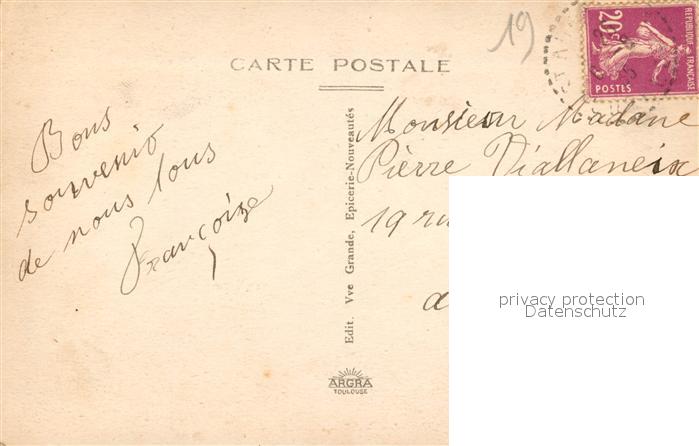 19
CARTE POSTALE
20c
REPUBLIQUE FRANÇAISE
POSTES
Bons
souvenio
de nous tous
Françoise
Edit. Vve Grande, Epicerie-Nouveautés
Monsieur Madane
Pierre Viallaneix
19 ru
a
privacy protection
Datenschutz
ARGRA
TOULOUSE